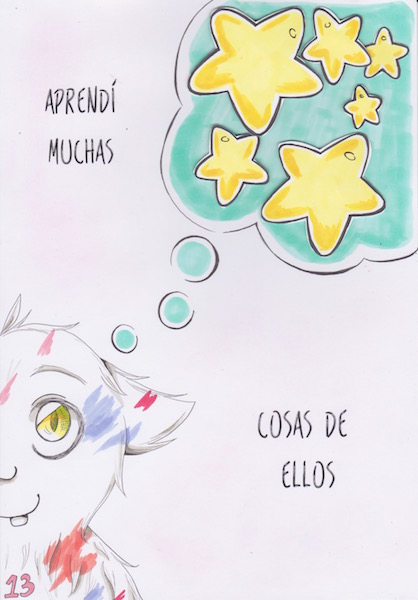 APRENDÍ
MUCHAS
COSAS DE
ELLOS
13